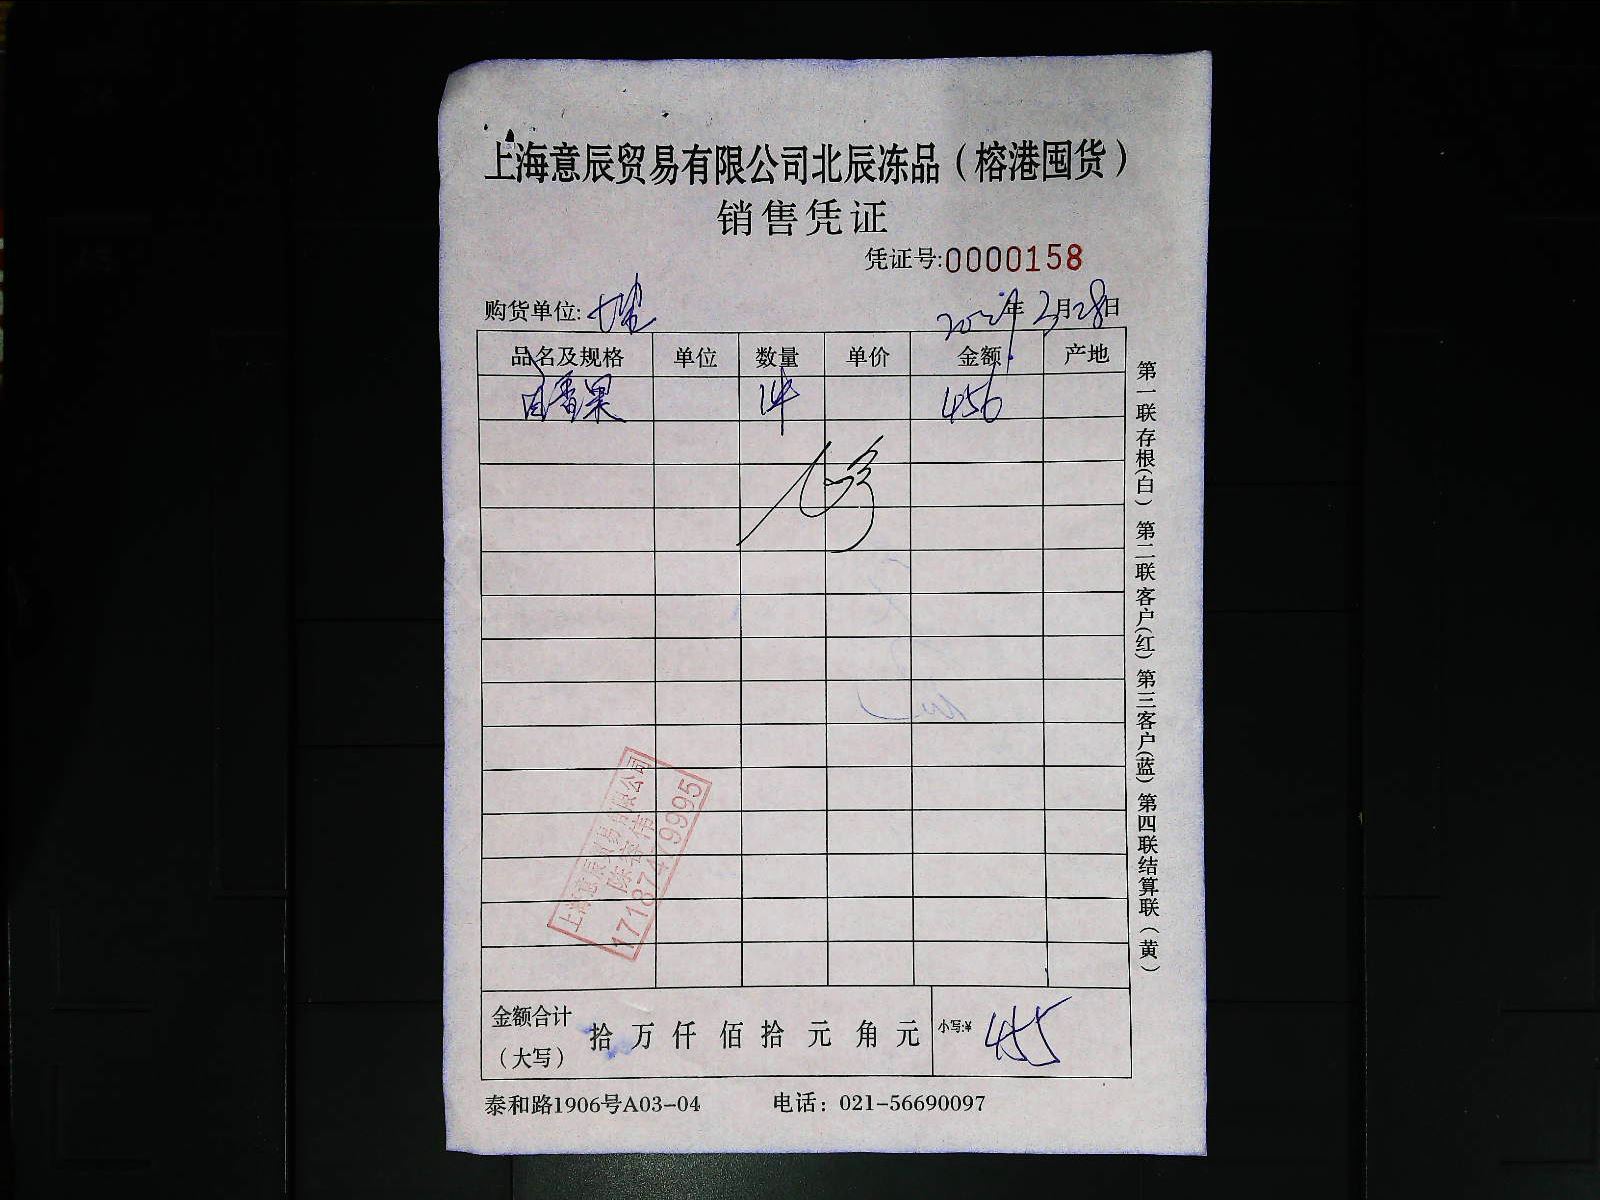 上海意辰贸易有限公司北辰冻品（榕港囤货）
销售凭证
凭证号:0000158
购货单位: 年2月28日
品名及规格 单位 数量 单价 金额 产地
百香果 1件 456
金额合计（大写） 拾 万 仟 佰 拾 元 角 元 小写:¥ 455
泰和路1906号A03-04 电话：021-56690097
第一联存根(白) 第二联客户(红) 第三客户(蓝) 第四联结算联(黄)
上海意辰贸易有限公司
17187479995